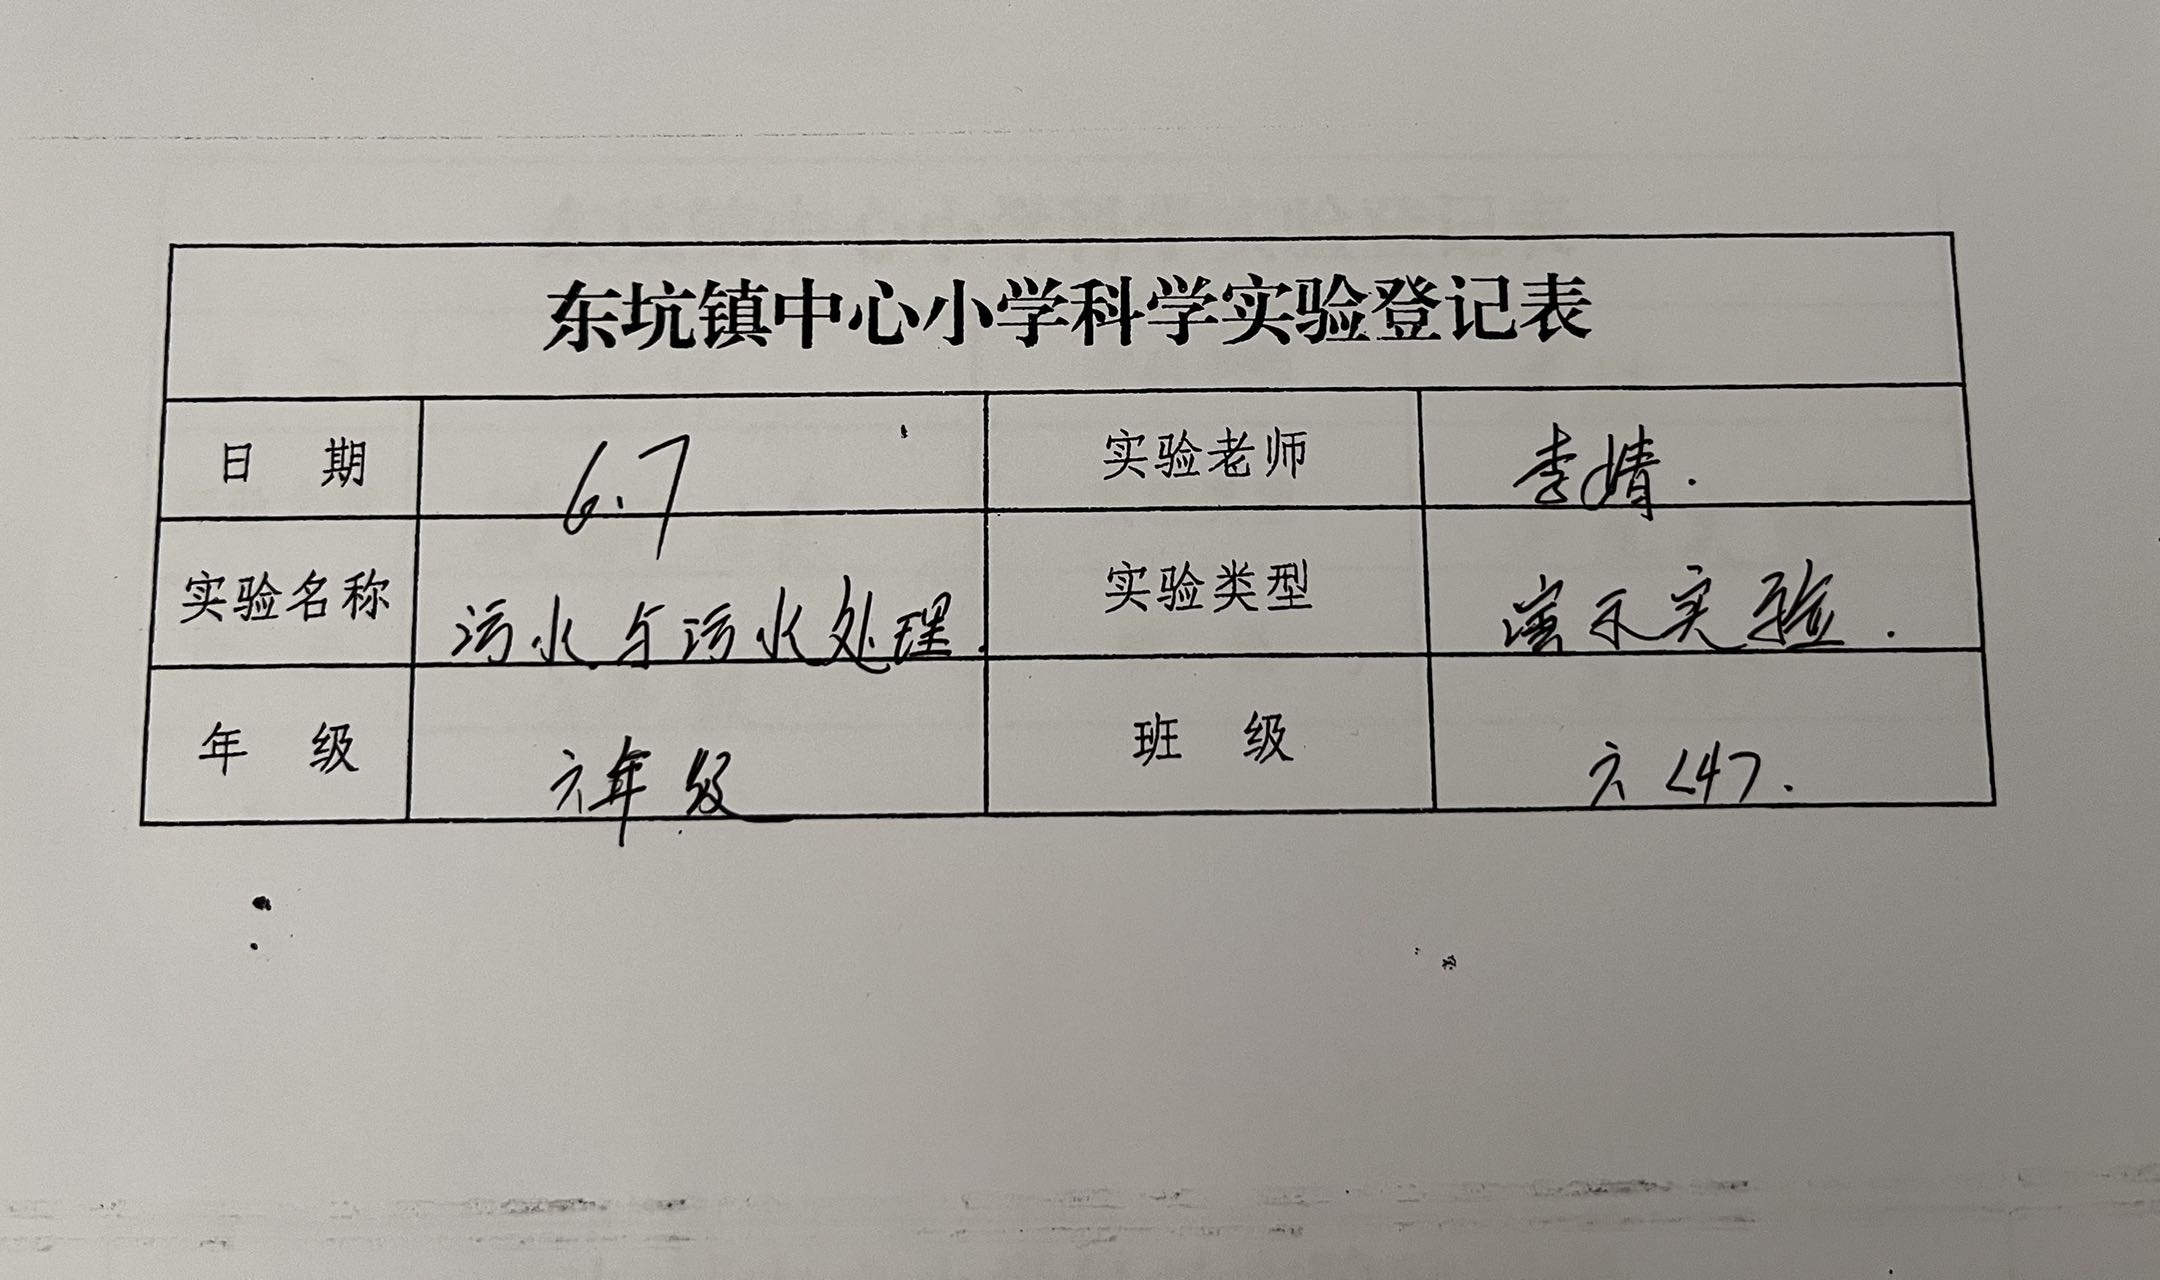 东坑镇中心小学科学实验登记表
日 期 6.7 实验老师 李婧.
实验名称 污水与污水处理. 实验类型 演示实验.
年 级 六年级 班 级 六<4>.